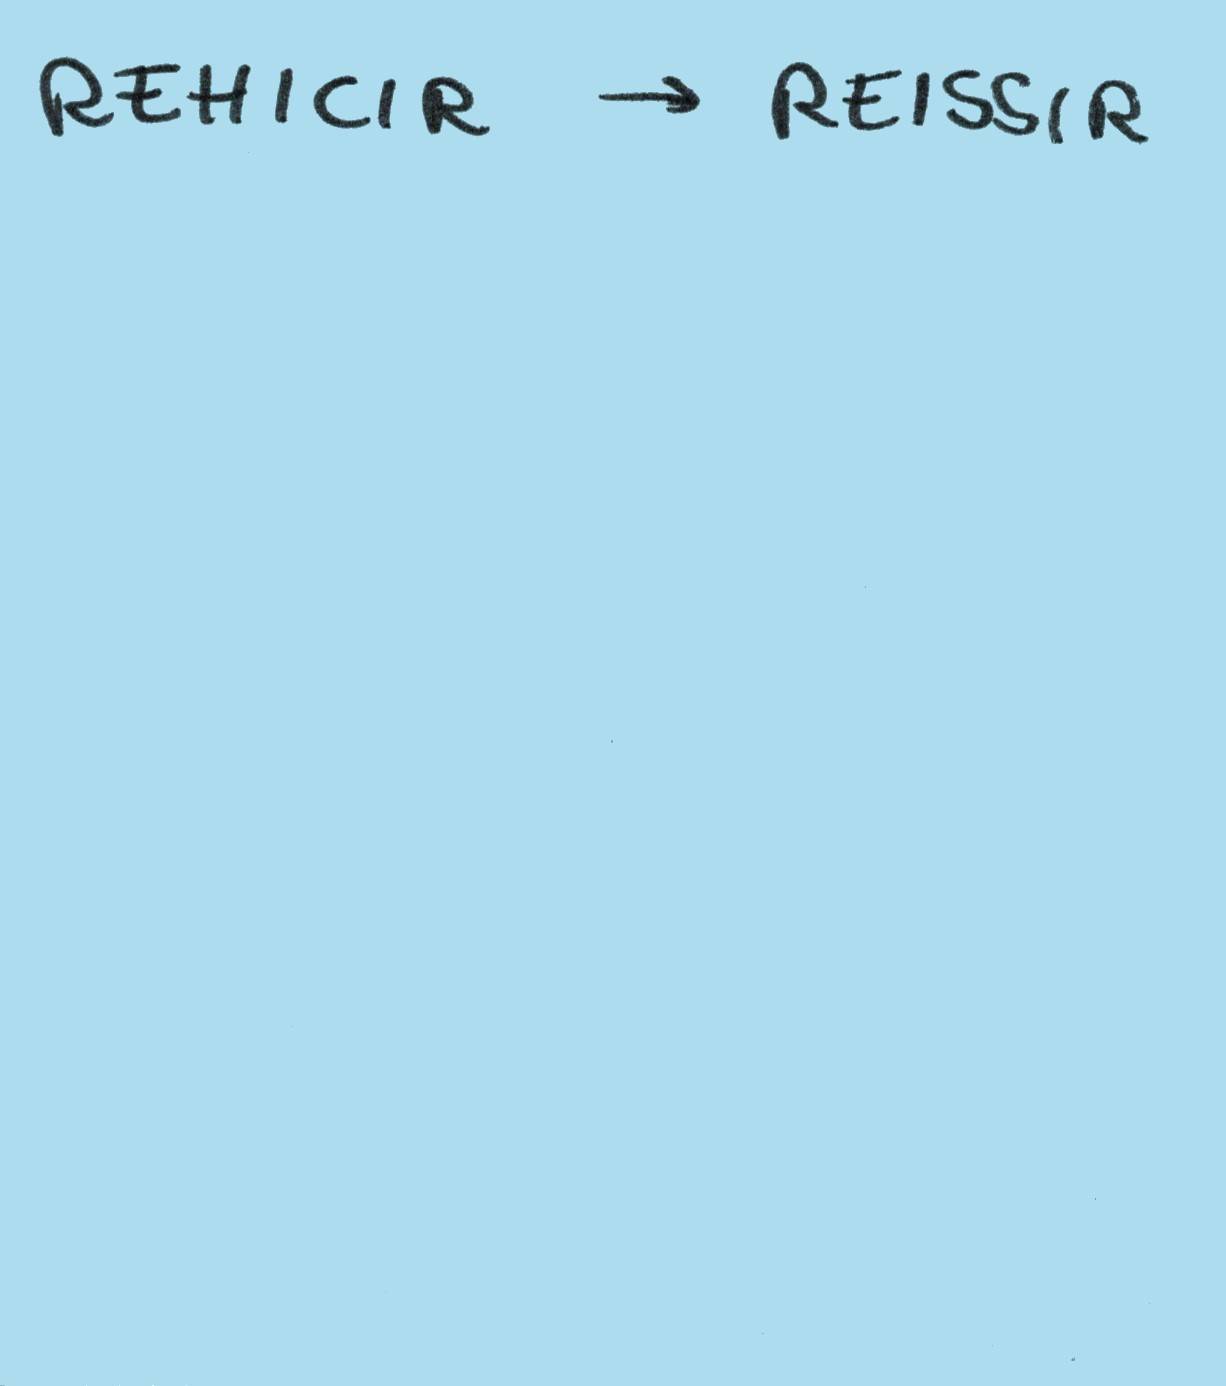 REHICIR → REISSIR